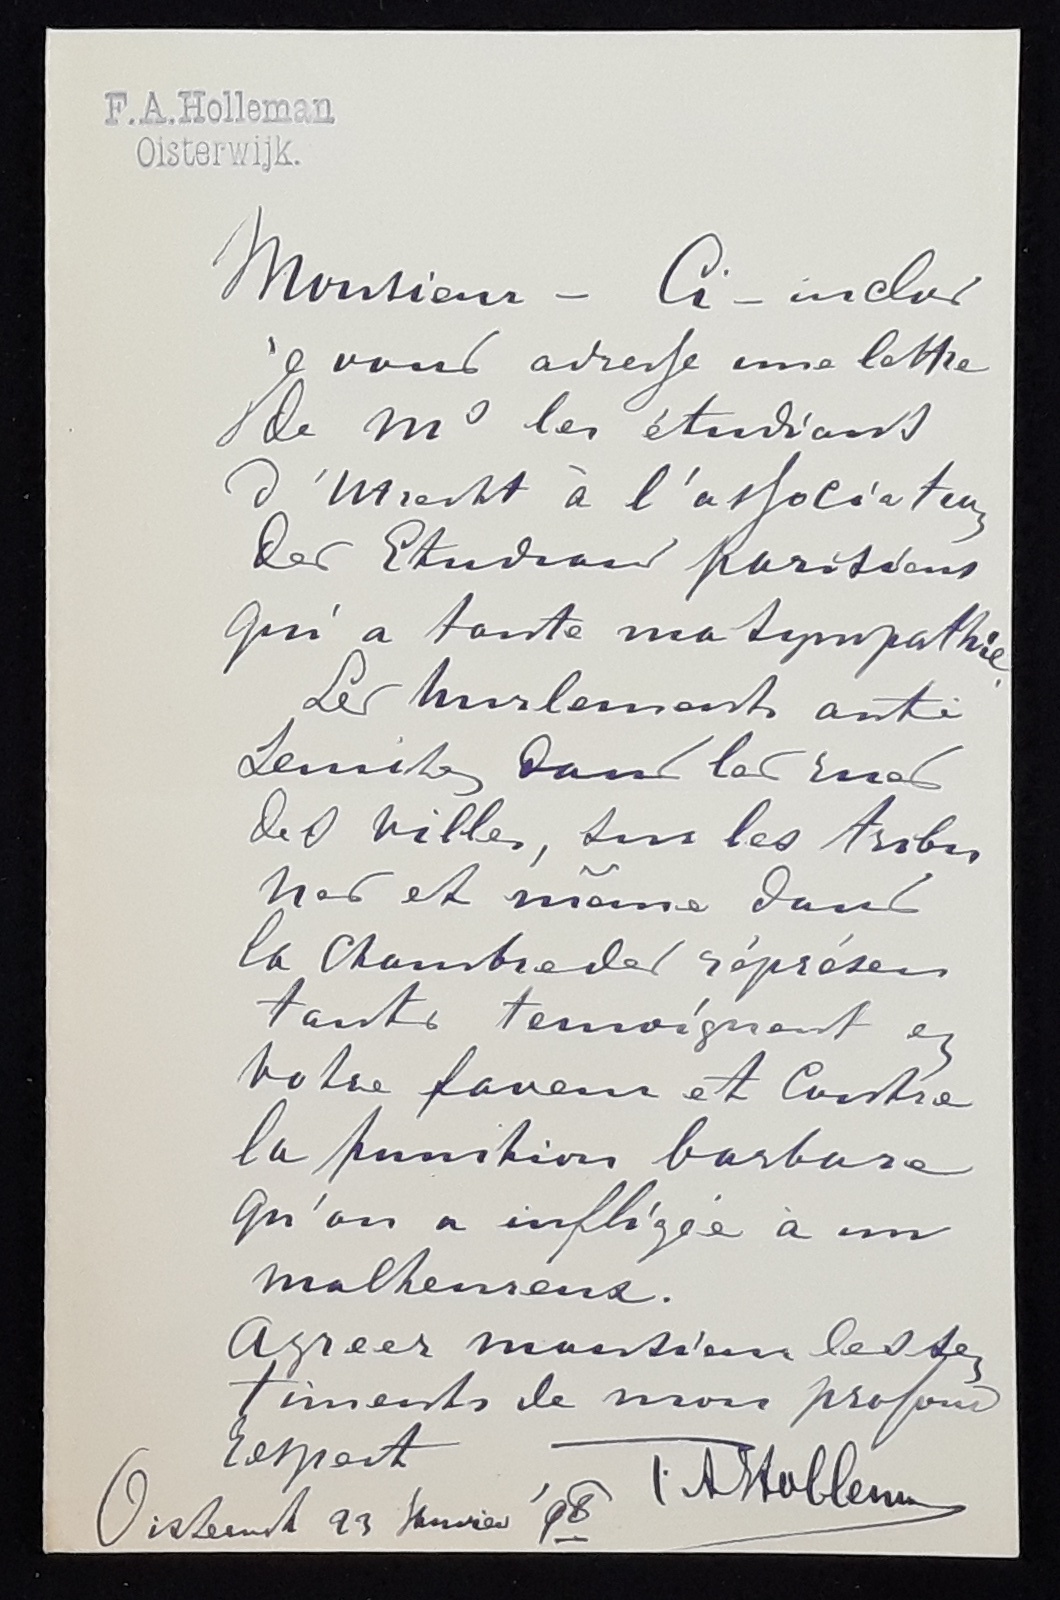 F.A.Holleman
Oisterwijk.
Monsieur – Ci – inclus
je vous adresse une lettre
de Ms les étudiants
d'Utrecht à l'association
des Etudians parisiens
qui a toute ma sympathie.
Les hurlements anti
semites dans les rues
des villes, sur les tribu
nes et même dans
la Chambre des réprésen
tants temoignent en
votre faveur et contre
la punition barbare
qu'on a infligée à un
malheureux.
Agreer monsieur les sen
timents de mon profond
respect
F. A Holleman
23 Janvier '98